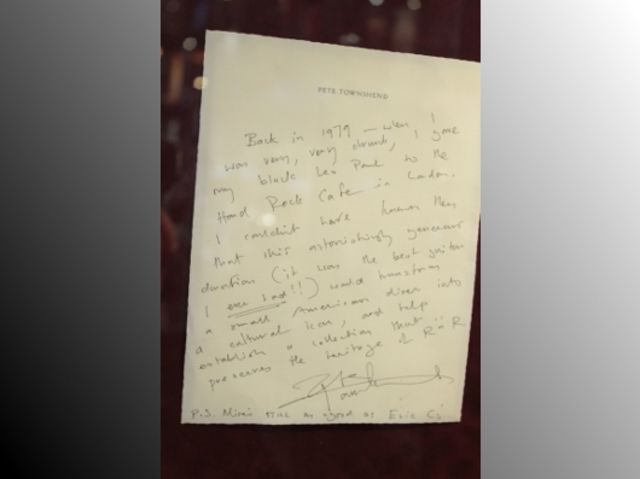 PETE TOWNSHEND
Back in 1979 — when I
was very, very drunk, I gave
my black Les Paul to the
Hard Rock Cafe in London.
I couldn't have known then
that this astonishingly generous
donation (it was the best guitar
I ever had!!) would transform
a small American diner into
a cultural icon, and help
establish a collection that
preserves the heritage of R'n'R
P.S. Mine's still as good as Eric C's.